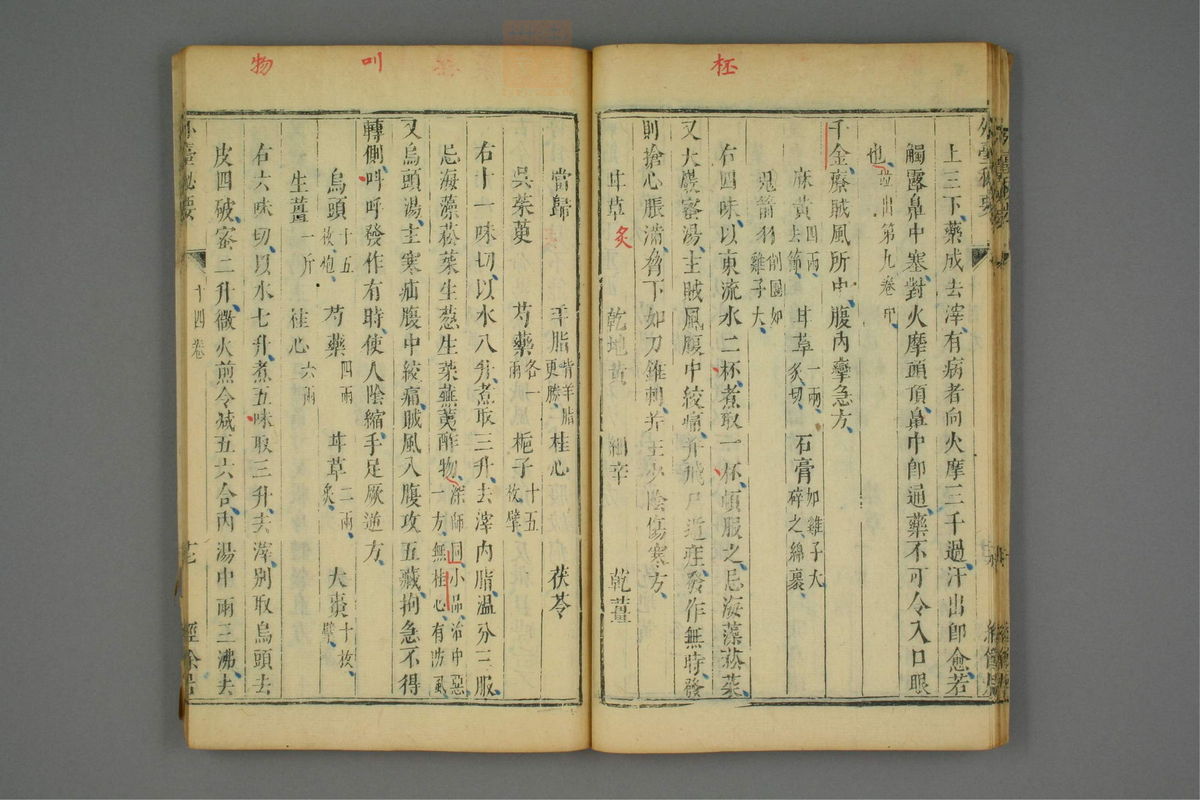 杯
上三下藥成去滓有病者向火摩三千過汗出即愈若
觸露鼻中塞對火摩頭頂鼻中即通藥不可令入口眼
也並出第九卷中
千金療賊風所中腹內攣急方
麻黃四兩去節 甘草一兩炙切 石膏如雞子大碎之綿裹
鬼箭羽削圓如雞子大
右四味以東流水二杯煮取一杯頓服之忌海藻菘菜
又大巖蜜湯主賊風腹中絞痛并飛尸遁疰發作無時發
則搶心脹滿脅下如刀錐刺并主少陰傷寒方
甘草炙 乾地黃 細辛 乾薑
叫
物
當歸 羊脂青羊脂更勝 桂心 茯苓
吳茱萸 芍藥各一兩 梔子十五枚擘
右十一味切以水八升煮取三升去滓內脂溫分三服
忌海藻菘菜生葱生菜蕪荑酢物深師同小品治中惡一方無桂心有防風
又烏頭湯主寒疝腹中絞痛賊風入腹攻五藏拘急不得
轉側叫呼發作有時使人陰縮手足厥逆方
烏頭十五枚炮 芍藥四兩 甘草二兩炙 大棗十枚擘
生薑一斤 桂心六兩
右六味切以水七升煮五味取三升去滓別取烏頭去
皮四破蜜二升微火煎令減五六合內湯中兩三沸去
外臺祕要 十四卷 經餘居